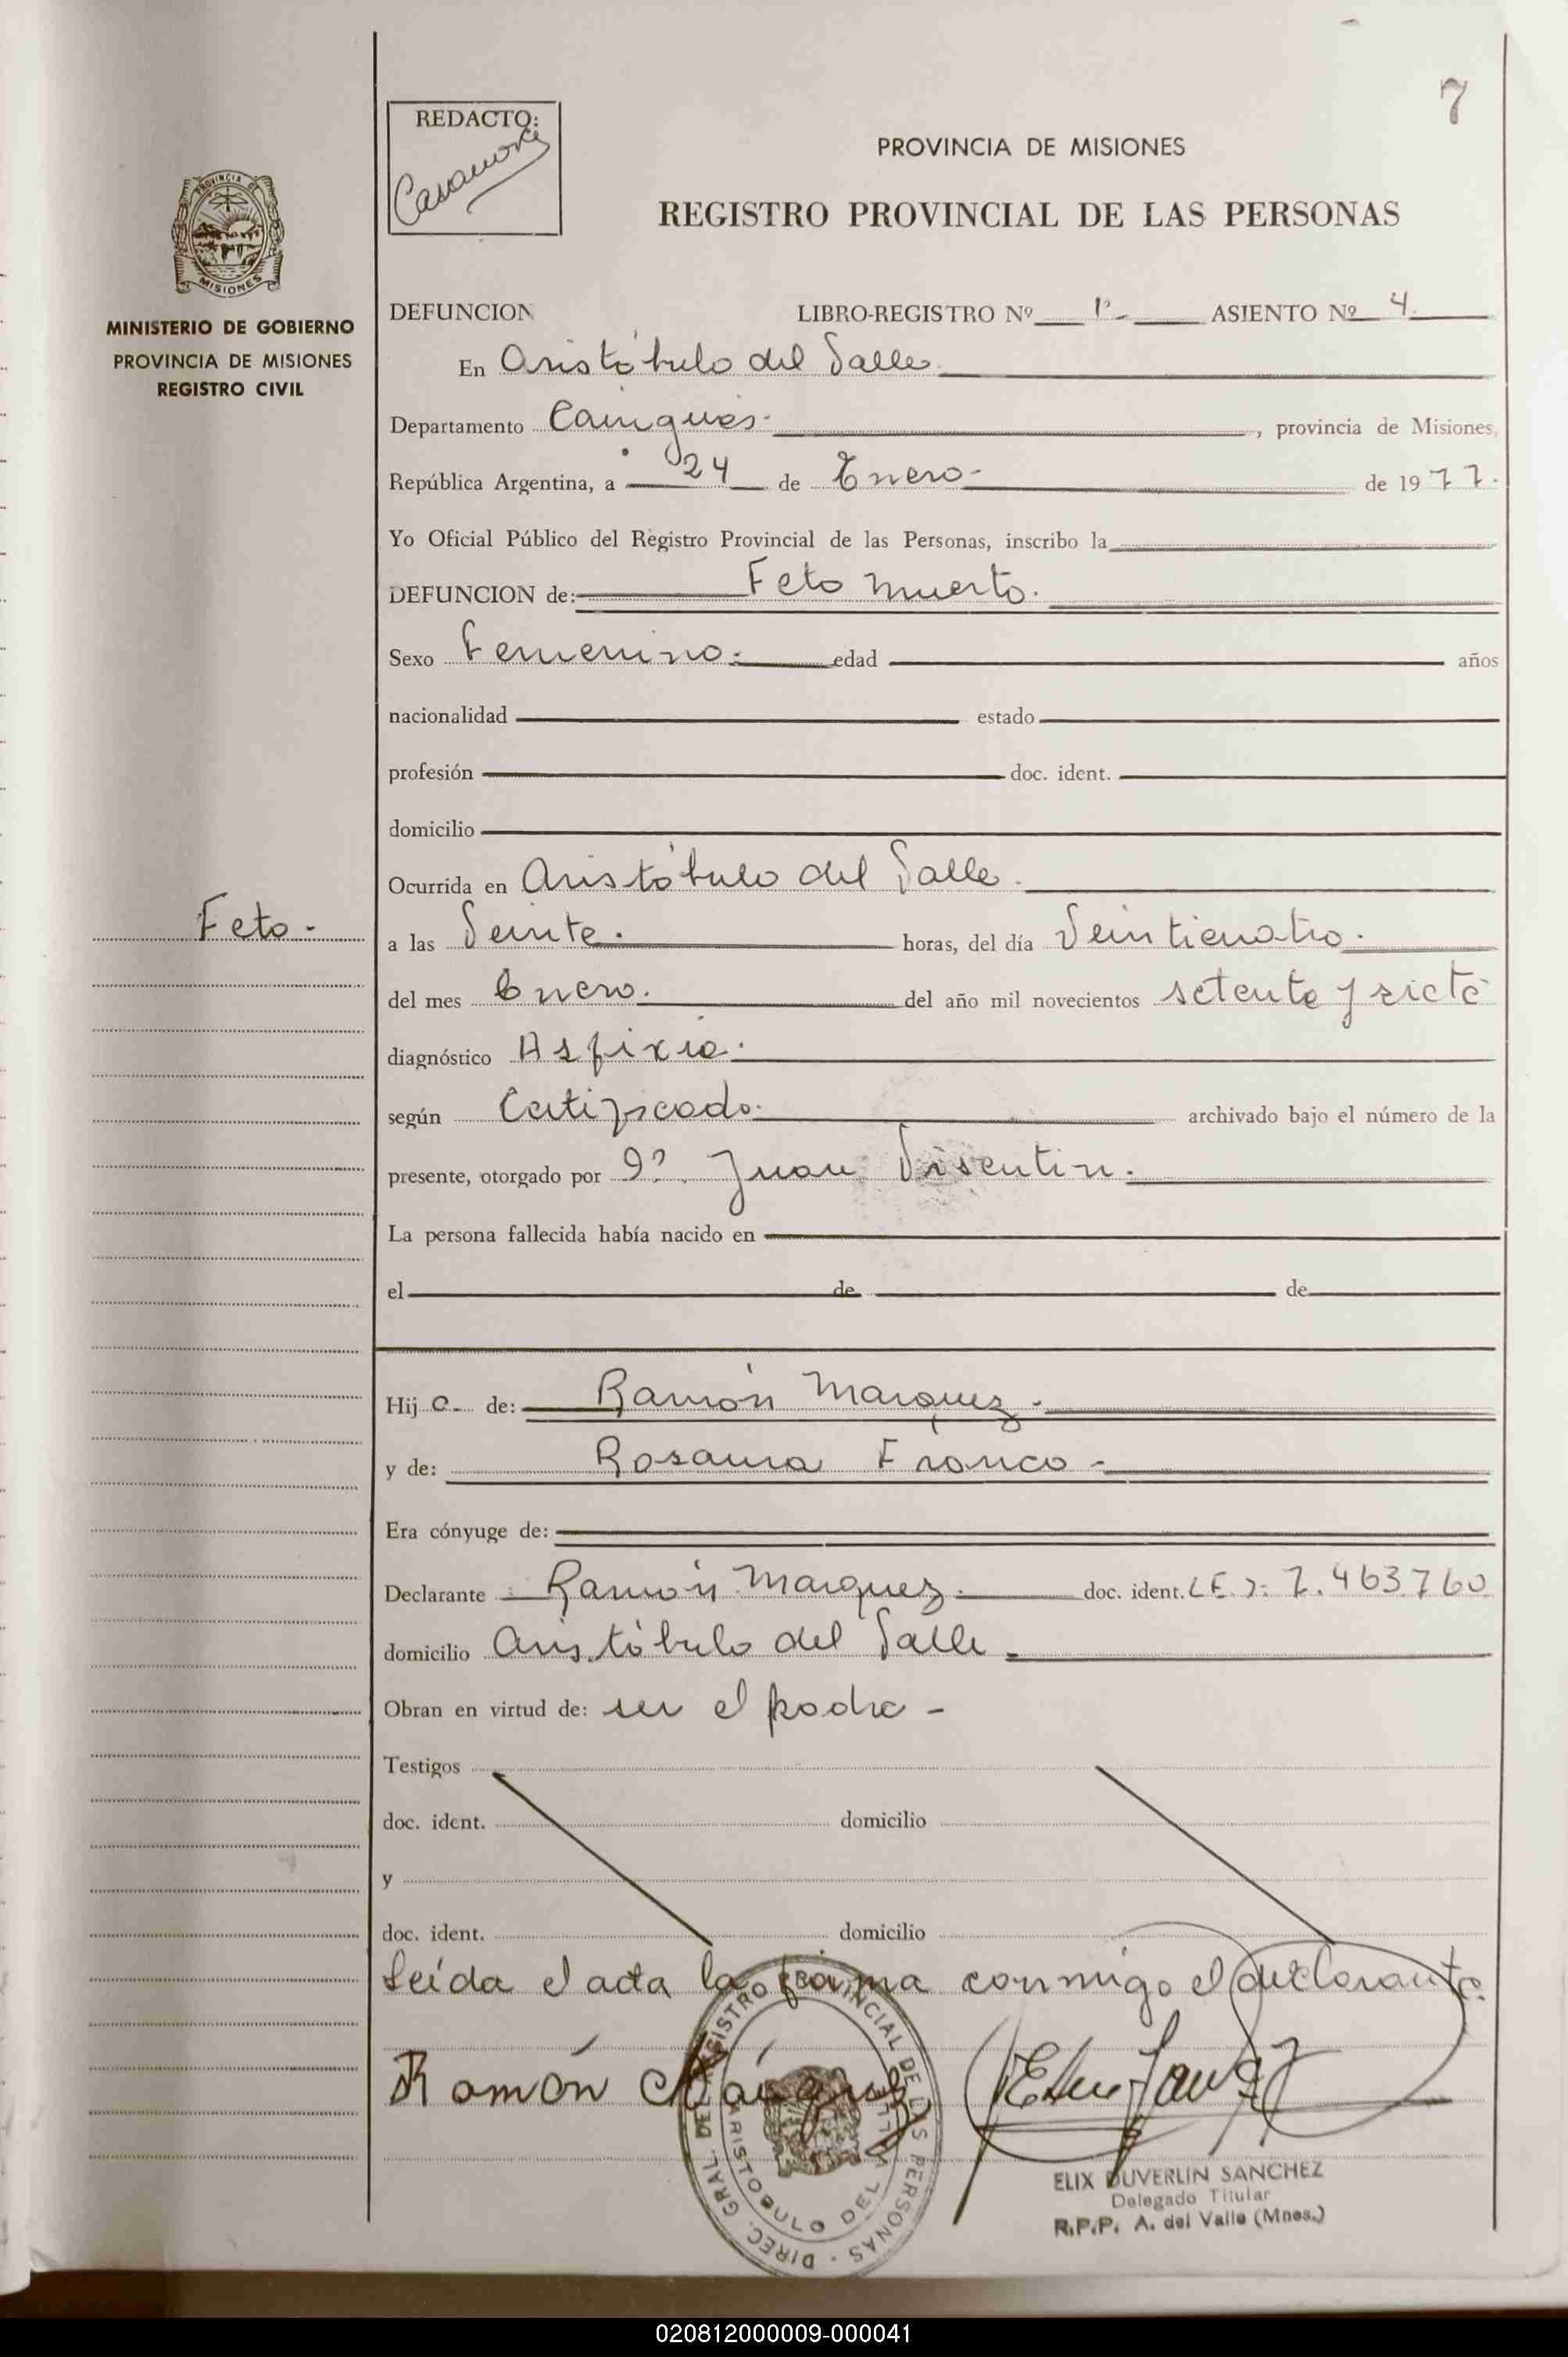 7
REDACTO:
Casanova
PROVINCIA DE MISIONES
REGISTRO PROVINCIAL DE LAS PERSONAS
PROVINCIA DE
MISIONES
MINISTERIO DE GOBIERNO
PROVINCIA DE MISIONES
REGISTRO CIVIL
DEFUNCION LIBRO-REGISTRO Nº 1º- ASIENTO Nº 4
En Aristóbulo del Valle.
Departamento Cainguás. , provincia de Misiones,
República Argentina, a 24 de Enero- de 1977.
Yo Oficial Público del Registro Provincial de las Personas, inscribo la
DEFUNCION de: Feto Muerto.
Sexo Femenino. edad años
nacionalidad estado
profesión doc. ident.
domicilio
Ocurrida en Aristóbulo del Valle.
Feto-
a las Veinte. horas, del día Veinticuatro.
del mes Enero. del año mil novecientos setenta y siete
diagnóstico Asfixia.
según Certificado. archivado bajo el número de la
presente, otorgado por Juan Visentin.
La persona fallecida había nacido en
el de de
Hij a de: Ramón Marquez.
y de: Rosaura Franco-
Era cónyuge de:
Declarante Ramón Marquez. doc. ident. L.E. 7.463760
domicilio Aristóbulo del Valle
Obran en virtud de: ser el padre -
Testigos
doc. ident. domicilio
y
doc. ident. domicilio
Leída el acta la firma conmigo el declarante.
Ramón Márquez
DIREC. GRAL. DEL REGISTRO PROVINCIAL DE LAS PERSONAS
ARISTOBULO DEL VALLE
ELIX DUVERLIN SANCHEZ
Delegado Titular
R.P.P. A. del Valle (Mnes.)
020812000009-000041